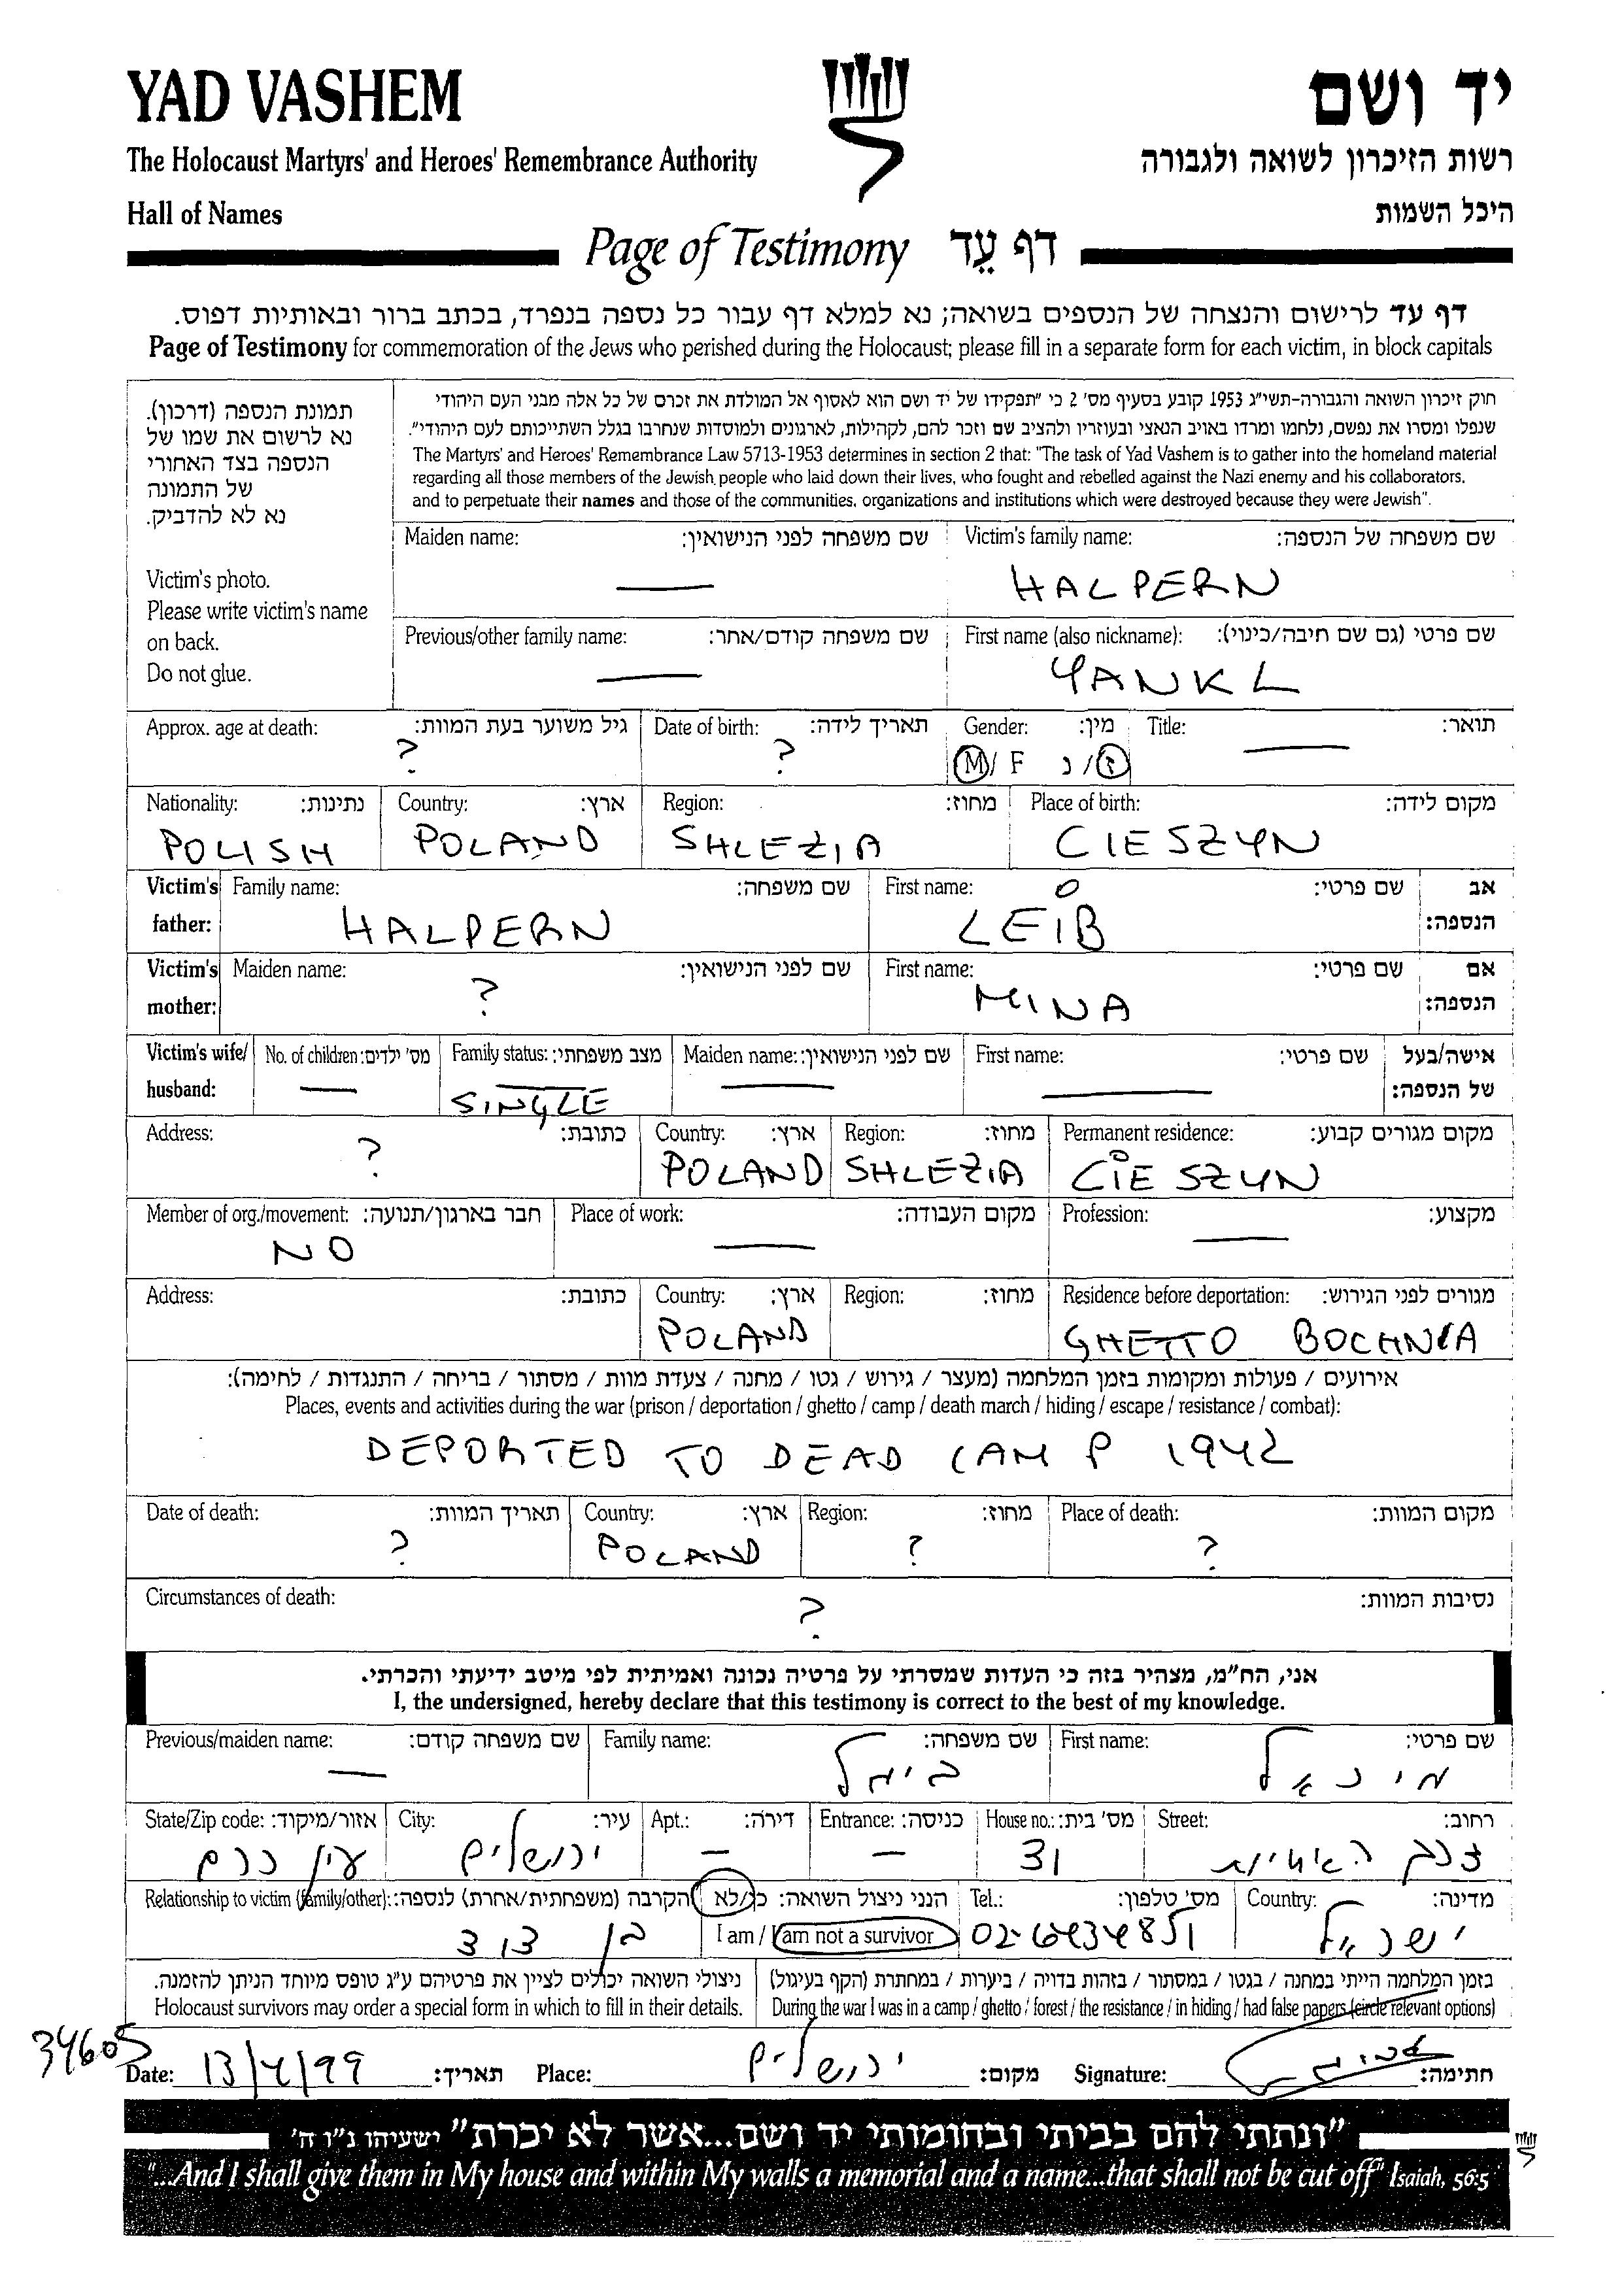 YAD VASHEM
יד ושם
The Holocaust Martyrs' and Heroes' Remembrance Authority
רשות הזיכרון לשואה ולגבורה
Hall of Names
היכל השמות
Page of Testimony דף עֵד
דף עד לרישום והנצחה של הנספים בשואה; נא למלא דף עבור כל נספה בנפרד, בכתב ברור ובאותיות דפוס.
Page of Testimony for commemoration of the Jews who perished during the Holocaust; please fill in a separate form for each victim, in block capitals
תמונת הנספה (דרכון).
נא לרשום את שמו של
הנספה בצד האחורי
של התמונה
נא לא להדביק.
Victim's photo.
Please write victim's name
on back.
Do not glue.
חוק זיכרון השואה והגבורה-תשי"ג 1953 קובע בסעיף מס' 2 כי "תפקידו של יד ושם הוא לאסוף אל המולדת את זכרם של כל אלה מבני העם היהודי
שנפלו ומסרו את נפשם, נלחמו ומרדו באויב הנאצי ובעוזריו ולהציב שם וזכר להם, לקהילות, לארגונים ולמוסדות שנחרבו בגלל השתייכותם לעם היהודי".
The Martyrs' and Heroes' Remembrance Law 5713-1953 determines in section 2 that: "The task of Yad Vashem is to gather into the homeland material
regarding all those members of the Jewish people who laid down their lives, who fought and rebelled against the Nazi enemy and his collaborators,
and to perpetuate their names and those of the communities, organizations and institutions which were destroyed because they were Jewish".
Maiden name: שם משפחה לפני הנישואין: Victim's family name: שם משפחה של הנספה:
— HALPERN
Previous/other family name: שם משפחה קודם/אחר: First name (also nickname): שם פרטי (גם שם חיבה/כינוי):
— YANKL
Approx. age at death: גיל משוער בעת המוות: Date of birth: תאריך לידה: Gender: מין: Title: תואר:
? ? M/ F ז/ נ —
Nationality: נתינות: Country: ארץ: Region: מחוז: Place of birth: מקום לידה:
POLISH POLAND SHLEZIA CIESZYN
Victim's father: Family name: שם משפחה: First name: שם פרטי: אב הנספה:
HALPERN LEIB
Victim's mother: Maiden name: שם לפני הנישואין: First name: שם פרטי: אם הנספה:
? MINA
Victim's wife/ husband: No. of children: מס' ילדים: Family status: מצב משפחתי: Maiden name: שם לפני הנישואין: First name: שם פרטי: אישה/בעל של הנספה:
— SINGLE — —
Address: כתובת: Country: ארץ: Region: מחוז: Permanent residence: מקום מגורים קבוע:
? POLAND SHLEZIA CIESZYN
Member of org./movement: חבר בארגון/תנועה: Place of work: מקום העבודה: Profession: מקצוע:
NO — —
Address: כתובת: Country: ארץ: Region: מחוז: Residence before deportation: מגורים לפני הגירוש:
POLAND GHETTO BOCHNIA
אירועים / פעולות ומקומות בזמן המלחמה (מעצר / גירוש / גטו / מחנה / צעדת מוות / מסתור / בריחה / התנגדות / לחימה):
Places, events and activities during the war (prison / deportation / ghetto / camp / death march / hiding / escape / resistance / combat):
DEPORTED TO DEAD CAMP 1942
Date of death: תאריך המוות: Country: ארץ: Region: מחוז: Place of death: מקום המוות:
? POLAND ? ?
Circumstances of death: נסיבות המוות:
?
אני, הח"מ, מצהיר בזה כי העדות שמסרתי על פרטיה נכונה ואמיתית לפי מיטב ידיעתי והכרתי.
I, the undersigned, hereby declare that this testimony is correct to the best of my knowledge.
Previous/maiden name: שם משפחה קודם: Family name: שם משפחה: First name: שם פרטי:
— מיכאל
State/Zip code: אזור/מיקוד: City: עיר: Apt.: דירה: Entrance: כניסה: House no.: מס' בית: Street: רחוב:
עין כרם ירושלים — — 31
Relationship to victim (family/other): הקרבה (משפחתית/אחרת) לנספה: הנני ניצול השואה: כן/לא Tel.: מס' טלפון: Country: מדינה:
בן דוד I am / I am not a survivor 02-6434851 ישראל
ניצולי השואה יכולים לציין את פרטיהם ע"ג טופס מיוחד הניתן להזמנה. בזמן המלחמה הייתי במחנה / בגטו / במסתור / בזהות בדויה / ביערות / במחתרת (הקף בעיגול)
Holocaust survivors may order a special form in which to fill in their details. During the war I was in a camp / ghetto / forest / the resistance / in hiding / had false papers (circle relevant options)
34605
Date: 13/4/99 תאריך: Place: ירושלים מקום: Signature: חתימה:
"ונתתי להם בביתי ובחומותי יד ושם...אשר לא יכרת" ישעיהו נ"ו ה'
"...And I shall give them in My house and within My walls a memorial and a name...that shall not be cut off" Isaiah, 56:5